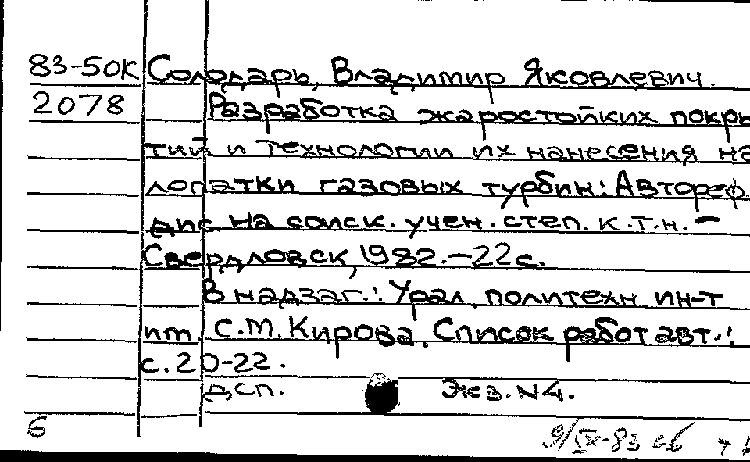 83-50К Солодарь, Владимир Яковлевич.
2078 Разработка жаростойких покры
тий и технологии их нанесения на
лопатки газовых турбин: Автореф.
дис на соиск. учен. степ. к.т.н. –
Свердловск, 1982. – 22 с.
В надзаг.: Урал. политехн. ин-т
им. С.М. Кирова. Список работ авт.:
с. 20-22.
ДСП. Экз. N4.
6